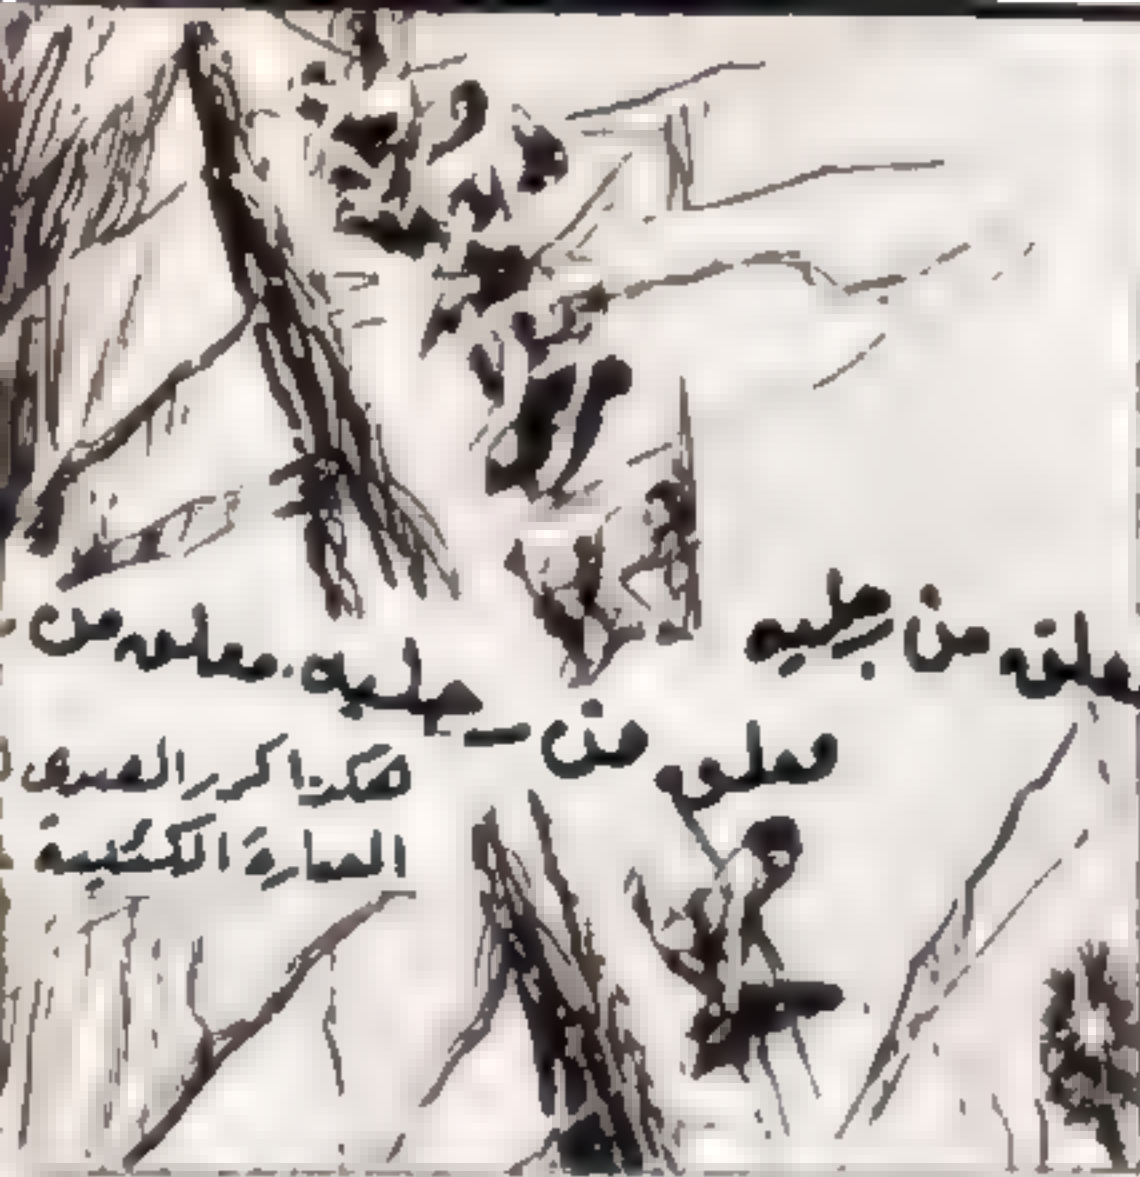 معلق من رجليه
معلق من رجليه. معلق من
هكذا كرر الصدى
العبارة الكئيبة